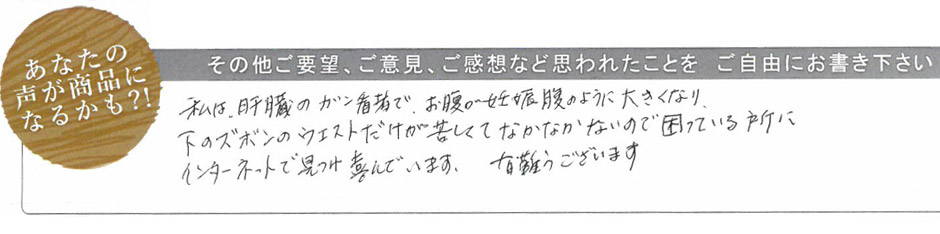 あなたの
声が商品に
なるかも?!
その他ご要望、ご意見、ご感想など思われたことを ご自由にお書き下さい
私は、肝臓のガン患者で、お腹が妊娠腹のように大きくなり、
下のズボンのウエストだけが苦しくてなかなかないので困っている所に
インターネットで見つけ喜んでいます。 有難うございます